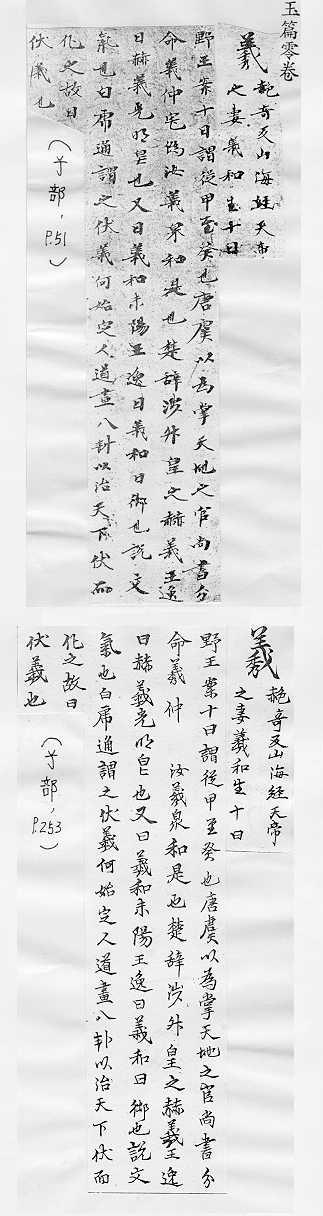 玉篇零卷
羲 赩奇反山海經天帝
之妻羲和生十日
野王案十日謂從甲至癸也唐虞以為掌天地之官尚書分
命羲仲宅堣汝羲泉和是也楚辭涉升皇之赫羲王逸
曰赫羲光明皃也又曰羲和未陽王逸曰羲和日御也說文
氣也白虎通謂之伏羲何始定人道畫八卦以治天下伏而
化之故曰
伏羲也
(兮部,P.51)
羲 赩奇反山海經天帝
之妻羲和生十日
野王案十日謂從甲至癸也唐虞以為掌天地之官尚書分
命羲仲 汝羲泉和是也楚辭涉升皇之赫羲王逸
曰赫羲光明皃也又曰羲和未陽王逸曰羲和日御也說文
氣也白虎通謂之伏羲何始定人道畫八卦以治天下伏而
化之故曰
伏羲也
(兮部,P.253)